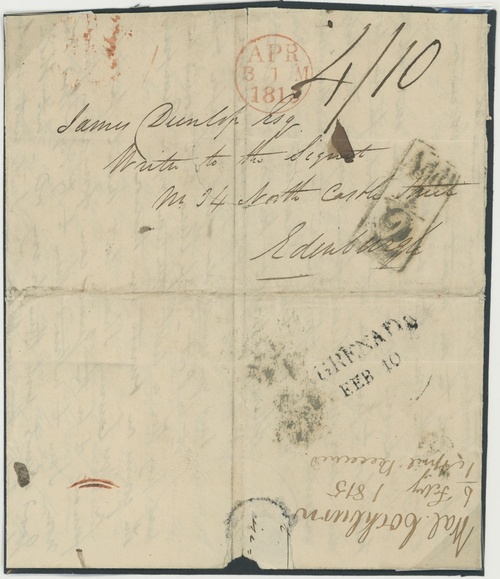 APR
B 1 M
181
4/10
James Dunlop Esq
Writer to the Signet
No 34 North Castle Street
Edinburgh
9
GRENADA
FEB 10
Wal. Cockburn
6 Feby 1815
April Received